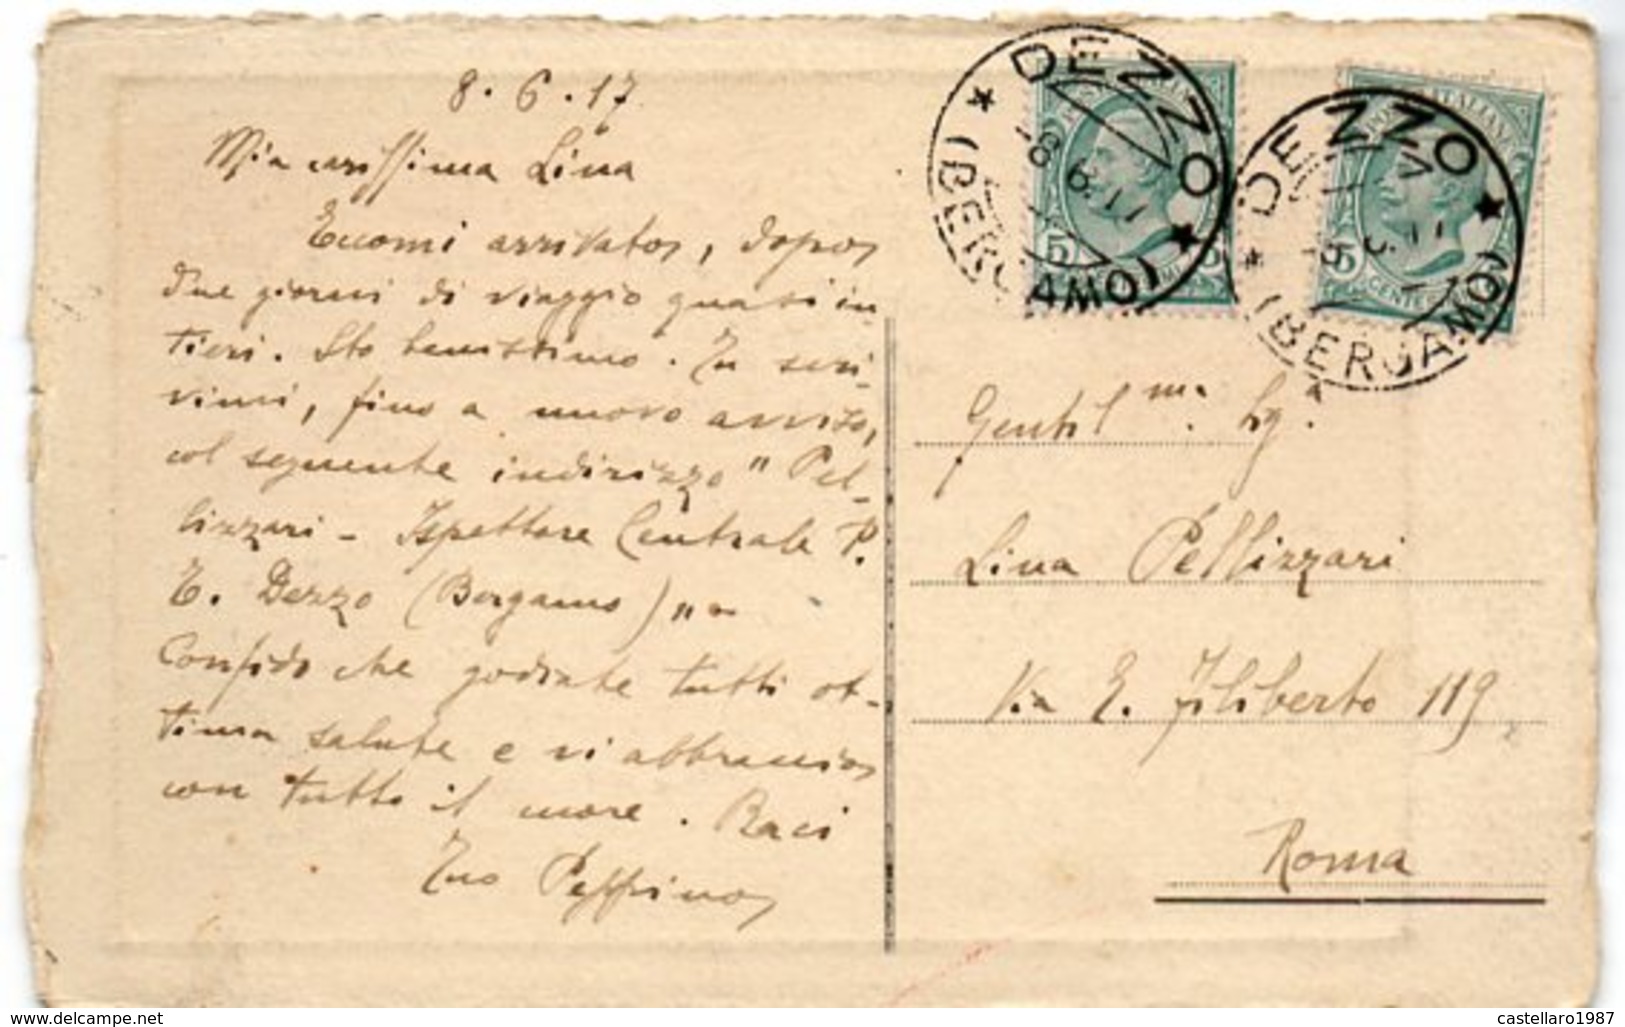 8.6.17
Mia carissima Lina
Eccomi arrivato, dopo
due giorni di viaggio quasi in-
tieri. Sto benissimo. Tu scri-
vimi, fino a nuovo avviso,
col seguente indirizzo " Pel-
lizzari - Ispettore Centrale P.
E. Dezzo (Bergamo) "
Confido che godiate tutti ot-
tima salute e vi abbraccio
con tutto il cuore. Baci
Tuo Peppino
DEZZO
(BERGAMO)
DEZZO
(BERGAMO)
5
5
CENTES
Gentil.ma Sig.a
Lina Pellizzari
Via E. Filiberto 119
Roma
www.delcampe.net
castellaro1987